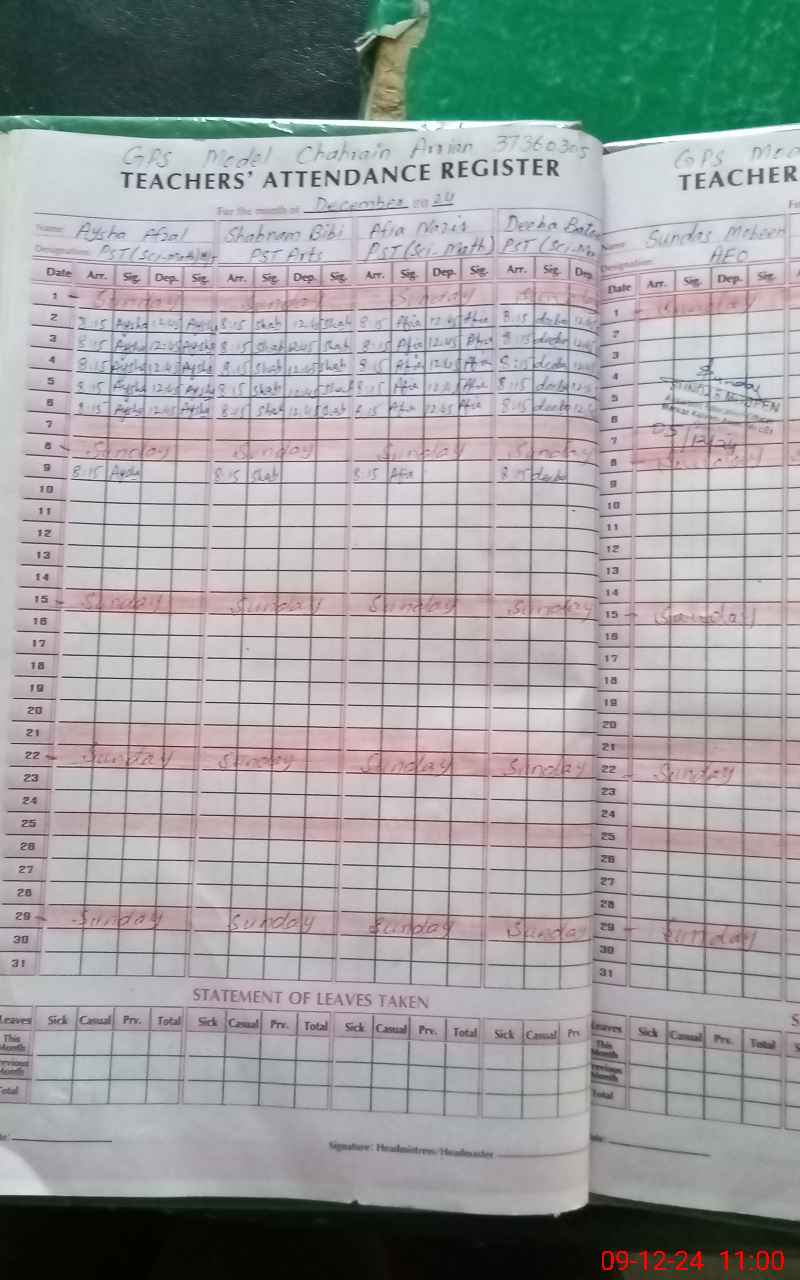 GPS Model Chahrain Arrian 37360305
TEACHERS' ATTENDANCE REGISTER
For the month of December 20 24
Name: Aysha Afzal Shabnam Bibi Afia Nazir Deeba
Designation: PST (Sci-math) PST Arts PST (Sci-Math) PST (Sci-
Date Arr. Sig. Dep. Sig. Arr. Sig. Dep. Sig. Arr. Sig. Dep. Sig. Arr. Sig. Dep.
1 Sunday Sunday Sunday Sunday
2 8:15 Aysha 12:45 Aysha 8:15 Shab 12:45 Shab 8:15 Afia 12:45 Afia 8:15 deeba 12:45
3 8:15 Aysha 12:45 Aysha 8:15 Shab 12:45 Shab 8:15 Afia 12:45 Afia 8:15 deeba 12:45
4 8:15 Aysha 12:45 Aysha 8:15 Shab 12:45 Shab 8:15 Afia 12:45 Afia 8:15 deeba 12:45
5 8:15 Aysha 12:45 Aysha 8:15 Shab 12:45 Shab 8:15 Afia 12:45 Afia 8:15 deeba 12:45
6 8:15 Aysha 12:45 Aysha 8:15 Shab 12:45 Shab 8:15 Afia 12:45 Afia 8:15 deeba 12:45
7
8 Sunday Sunday Sunday Sunday
9 8:15 Aysha 8:15 Shab 8:15 Afia 8:15 deeba
10
11
12
13
14
15 Sunday Sunday Sunday Sunday
16
17
18
19
20
21
22 Sunday Sunday Sunday Sunday
23
24
25
26
27
28
29 Sunday Sunday Sunday Sunday
30
31
STATEMENT OF LEAVES TAKEN
Leaves Sick Casual Prv. Total Sick Casual Prv. Total Sick Casual Prv. Total Sick Casual Prv.
This Month
Previous Month
Total
Signature: Headmistress/Headmaster
GPS Mod
TEACHER
Name: Sundas Mobeen
Designation: AEO
Date Arr. Sig. Dep. Sig.
1 Sunday
2
3
4
5
6
7 05/12/24
8 Sunday
9
10
11
12
13
14
15 Sunday
16
17
18
19
20
21
22 Sunday
23
24
25
26
27
28
29 Sunday
30
31
Leaves Sick Casual Prv. Total
This Month
Previous Month
Total
09-12-24 11:00